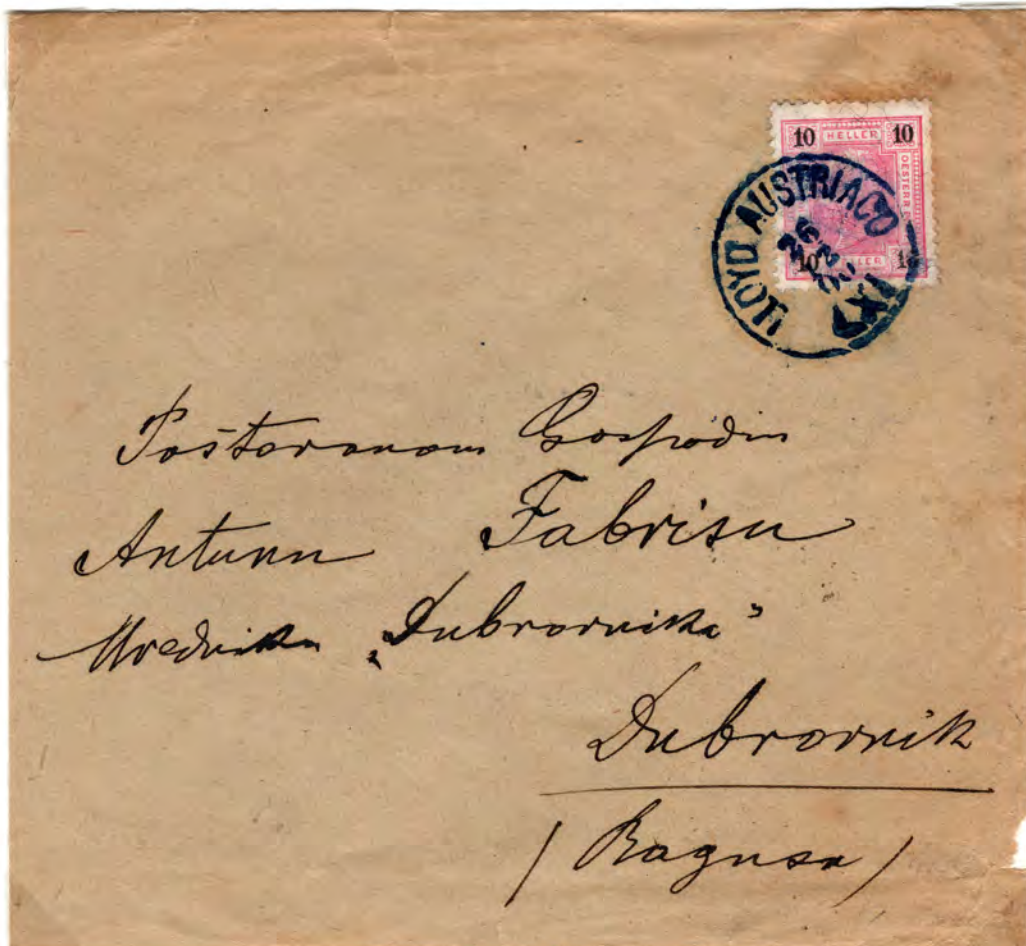 10 HELLER 10
OESTERR
10 HELLER 1
LLOYD AUSTRIACO
LXV
Poštovanom Gospodinu
Antunu Fabrisu
Uredniku „Dubrovnika”
Dubrovnik
/ Ragusa /